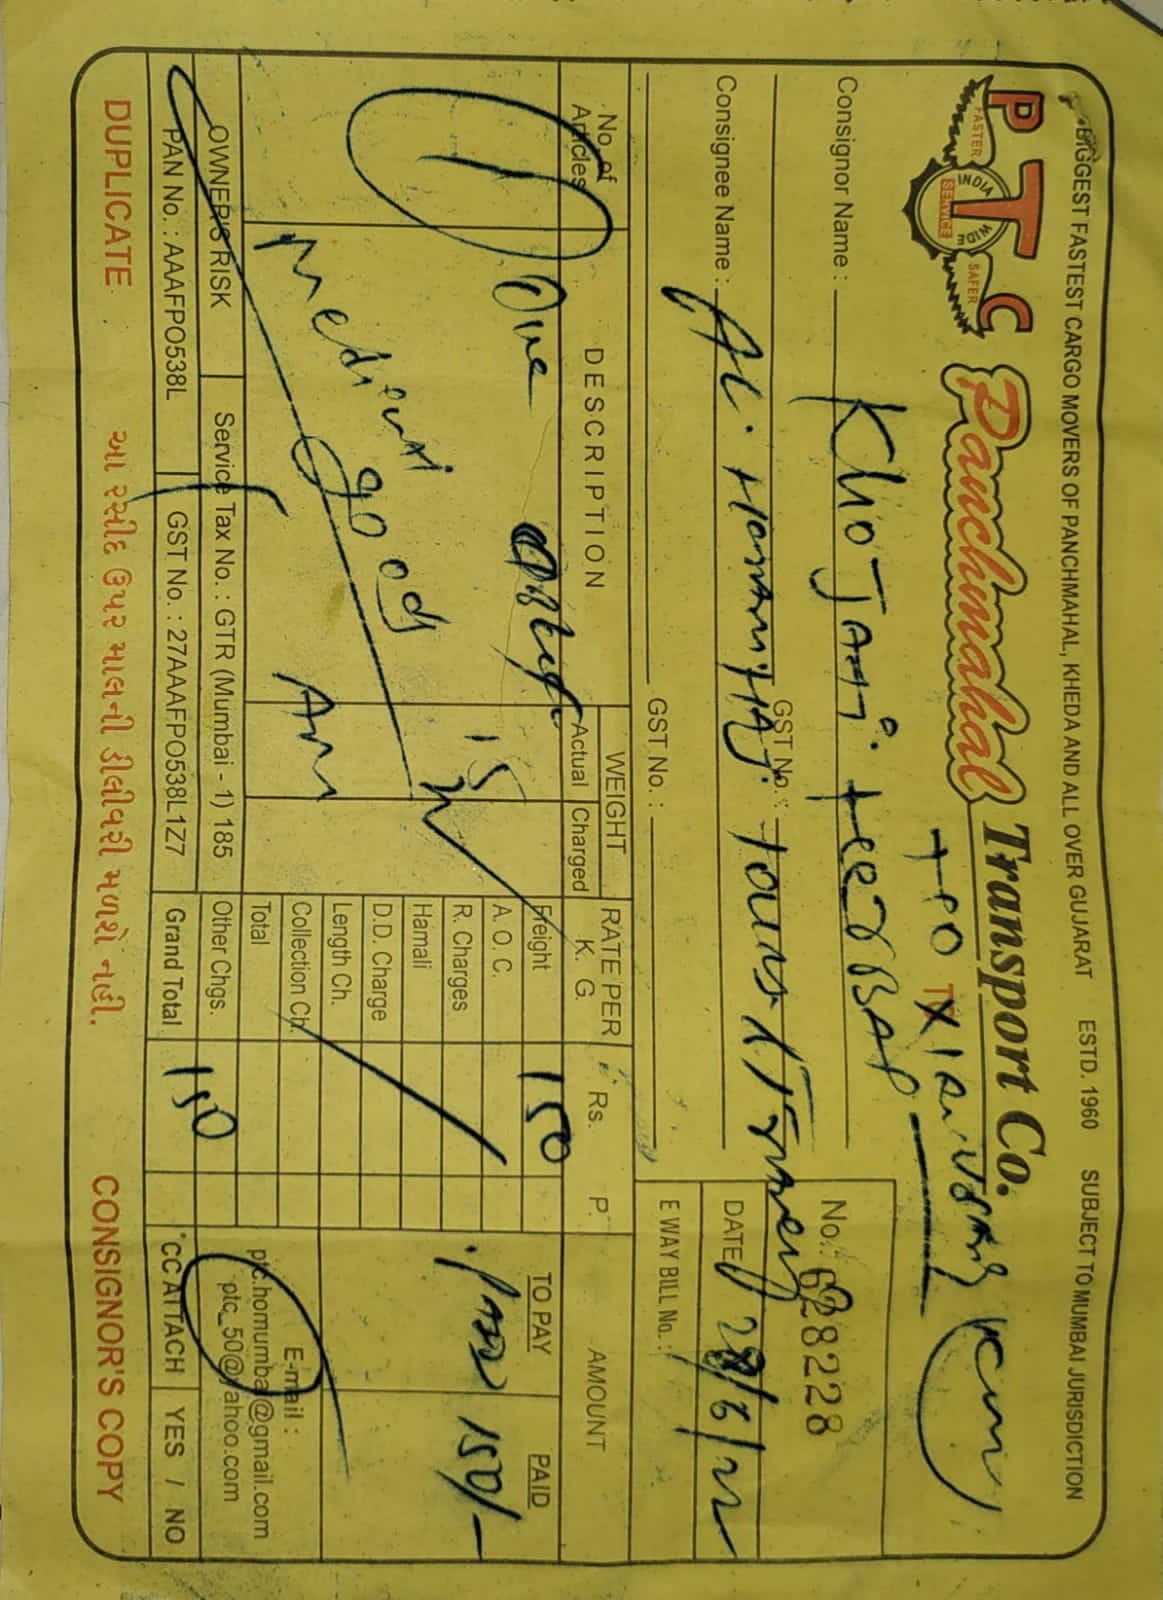 BIGGEST FASTEST CARGO MOVERS OF PANCHMAHAL, KHEDA AND ALL OVER GUJARAT ESTD. 1960 SUBJECT TO MUMBAI JURISDICTION
PTC
FASTER INDIA WIDE SERVICE SAFER
Panchmahal Transport Co.
No.: 628228
Consignor Name : KHOJAMI
GST No. :
DATE 28/6/22
Consignee Name : AL.
GST No. :
E WAY BILL No. :
No. of Articles
DESCRIPTION
WEIGHT
Actual Charged
RATE PER K. G.
Rs. P.
AMOUNT
TO PAY PAID
1 One
15
Freight 150
A. O. C.
R. Charges
150/-
good
Hamali
D.D. Charge
Length Ch.
Collection Ch.
Total
E-mail :
ptc.homumbai@gmail.com
OWNER'S RISK
Service Tax No. : GTR (Mumbai - 1) 185
Other Chgs.
ptc_50@yahoo.com
PAN No. : AAAFPO538L
GST No. : 27AAAFPO538L1Z7
Grand Total 150
*CC ATTACH YES / NO
DUPLICATE આ રસીદ ઉપર માલની ડીલીવરી મળશે નહીં. CONSIGNOR'S COPY